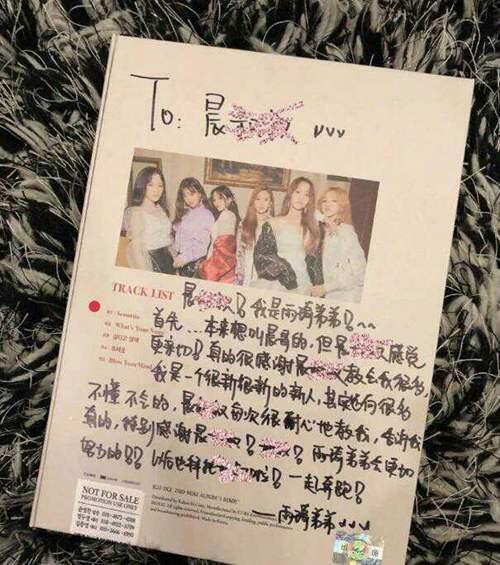 To: 晨 vvv
TRACK LIST
晨 ! 我是雨琦弟弟! ~~
01 Senorita
首先...本来想叫晨哥的,但晨 感觉
02 What's Your Name
03 싫다고 말해
更亲切!真的很感谢晨 教会我很多,
04 주세요
05 Blow Your Mind
我是一个很新很新的新人,其实也有很多
不懂不会的,晨 每次很耐心地教我,告诉我
真的,特别感谢晨 ! ! 雨琦弟弟会更加
努力的!! 以后也拜托 啦! 一起奔跑!
—雨琦弟弟 vvv
(G)I-DLE 2ND MINI ALBUM 'I MADE'
NOT FOR SALE
PROMOTION USE ONLY